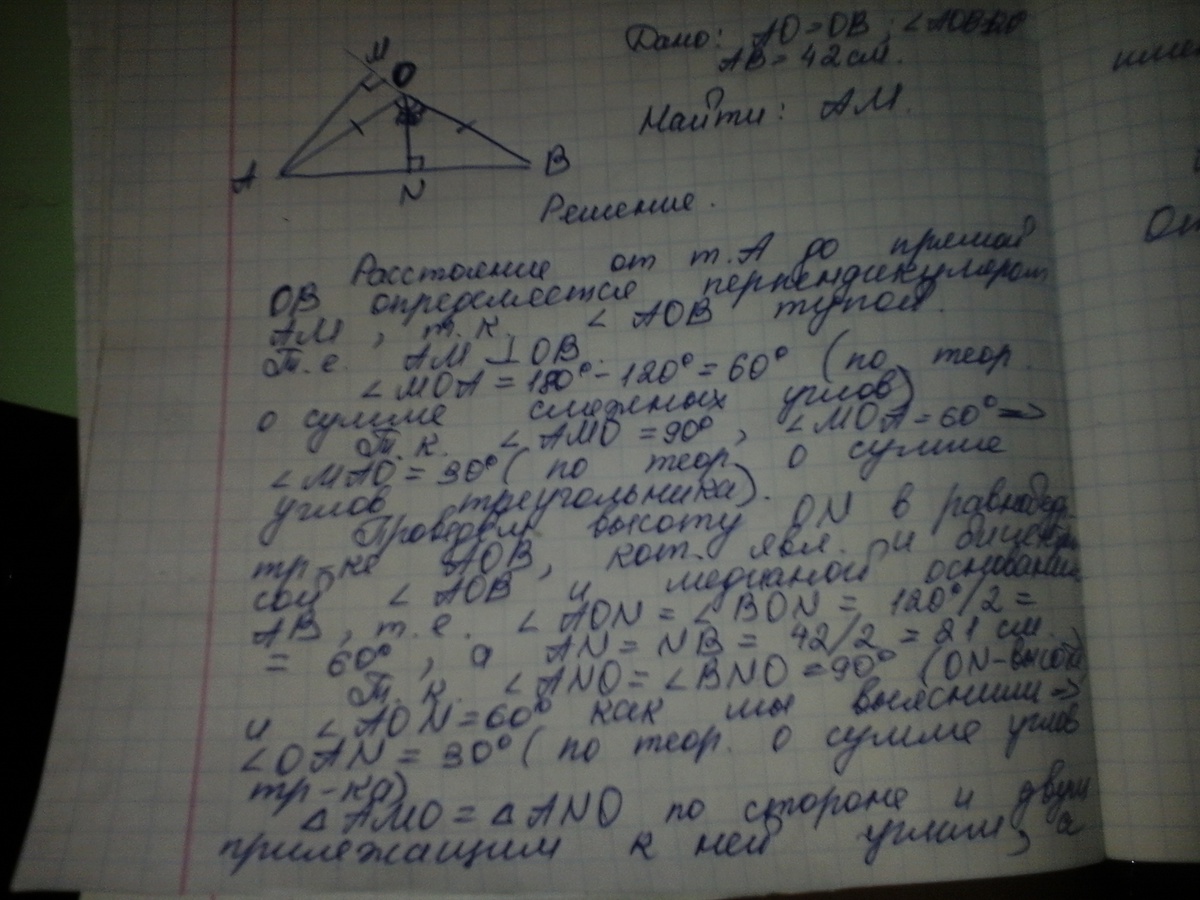 Дано: АО=ОВ; <АОВ=120
АВ = 42 см.
Найти: АМ.
М
О
А
N
В
Решение.
Расстояние от т.А до прямой
ОВ определяется перпендикуляром
АМ, т.к. < АОВ тупой.
Т.е. АМ ⊥ ОВ.
<МОА = 180° - 120° = 60° (по теор.
о сумме смежных углов)
Т.к. <АМО = 90°, <МОА = 60° =>
<МАО = 30° (по теор. о сумме
углов треугольника).
Проведем высоту ОN в равнобед.
тр-ке АОВ, кот. явл. и биссектри
сой < АОВ и медианой основания
АВ, т.е. < АОN = <ВОN = 120°/2 =
= 60°, а АN = NВ = 42/2 = 21 см.
Т.к. <АNО = <ВNО = 90° (ОN-высота
и <АОN = 60° как мы выяснили =>
<ОАN = 30° (по теор. о сумме углов
тр-ка)
△ АМО = △ АNО по стороне и двум
прилежащим к ней углам, а
От